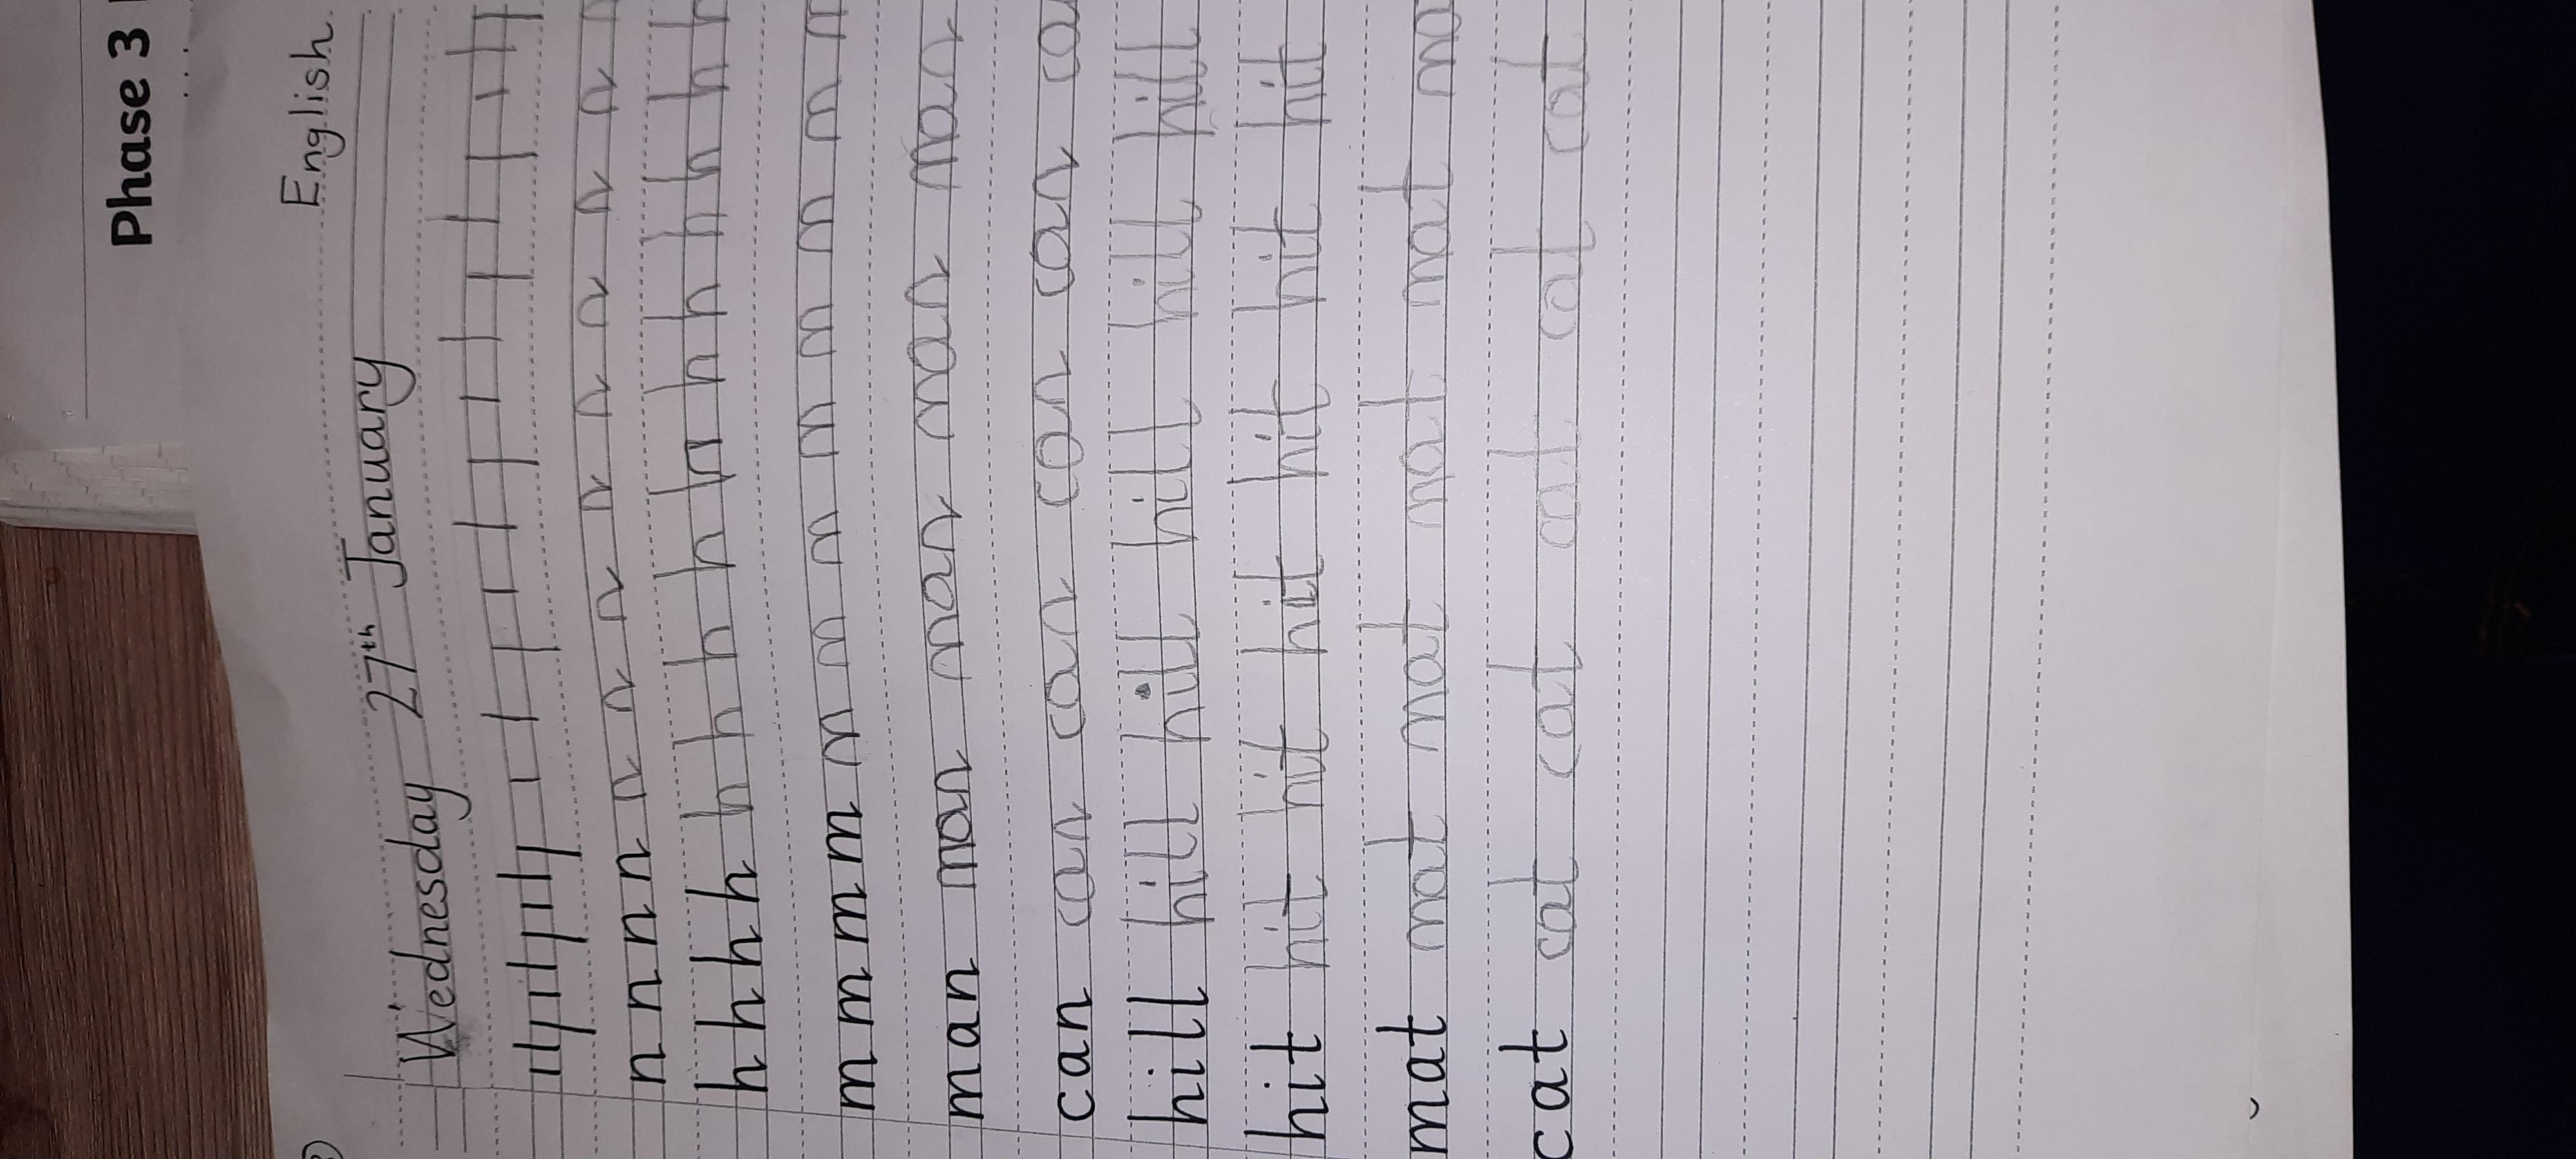 Phase 3
English
Wednesday 27th January
n n n n n n n n n n n n n
h h h h h h h h h h h h h h h h
m m m m m m m m m m m m m
man man man man man
can can can can can ca
hill hill hill hill hill hill
hit hit hit hit hit hit hit
mat mat mat mat mat ma
cat cat cat cat cat cat